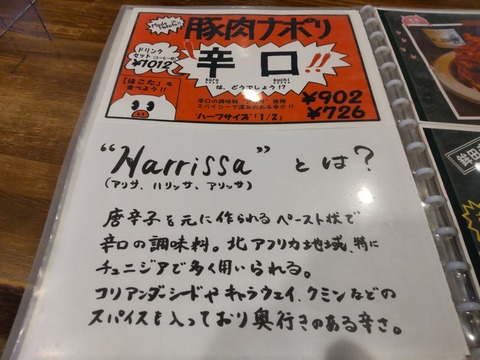 豚肉ナポリ
ドリンク
セット(コーヒー付)
¥1012
辛口!!
kara kuchi
は、どうでしょう!?
「ほこた」を
食べよう!!
辛口の調味料 使用
スパイシーで深みのある辛さ!!
¥902
"ハーフサイズ"「1/2」
¥726
"Harrissa" とは?
(アリサ、ハリッサ、アリッサ)
唐辛子を元に作られるペースト状で
辛口の調味料。北アフリカ地域、特に
チュニジアで多く用いられる。
コリアンダーシードやキャラウェイ、クミンなどの
スパイスを入っており奥行きのある辛さ。
鉾田